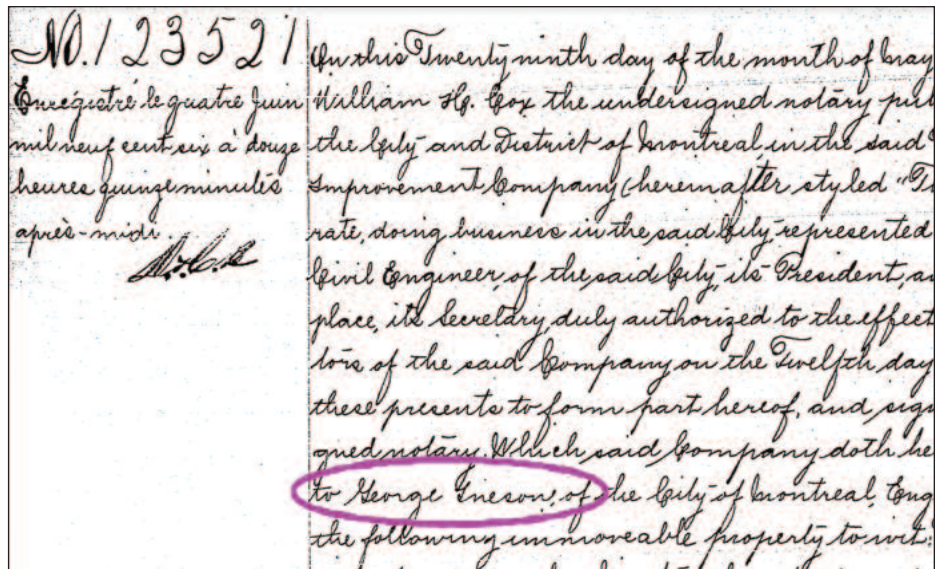 No. 123521
Enregistré le quatre Juin
mil neuf cent six à douze
heures quinze minutes
après-midi.
On this Twenty ninth day of the month of May
William H. Cox the undersigned notary pu
the City and District of Montreal, in the said
Improvement Company (hereinafter styled "T
rate, doing business in the said City, represented
Civil Engineer, of the said City, its President, a
place, its Secretary, duly authorized to the effect
tors of the said Company on the Twelfth day
these presents to form part hereof, and sig
gned notary. Which said Company doth he
to George Grieson, of the City of Montreal Eng
the following immoveable property to wit: